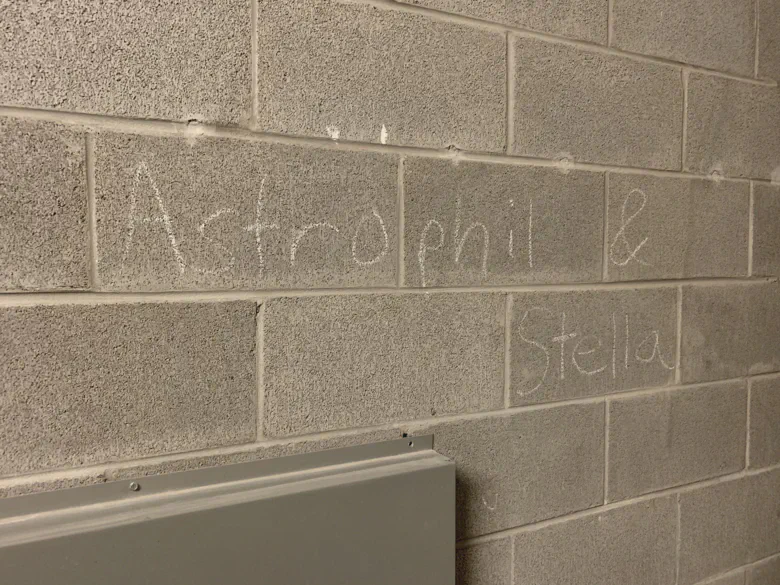 Astrophil &
Stella